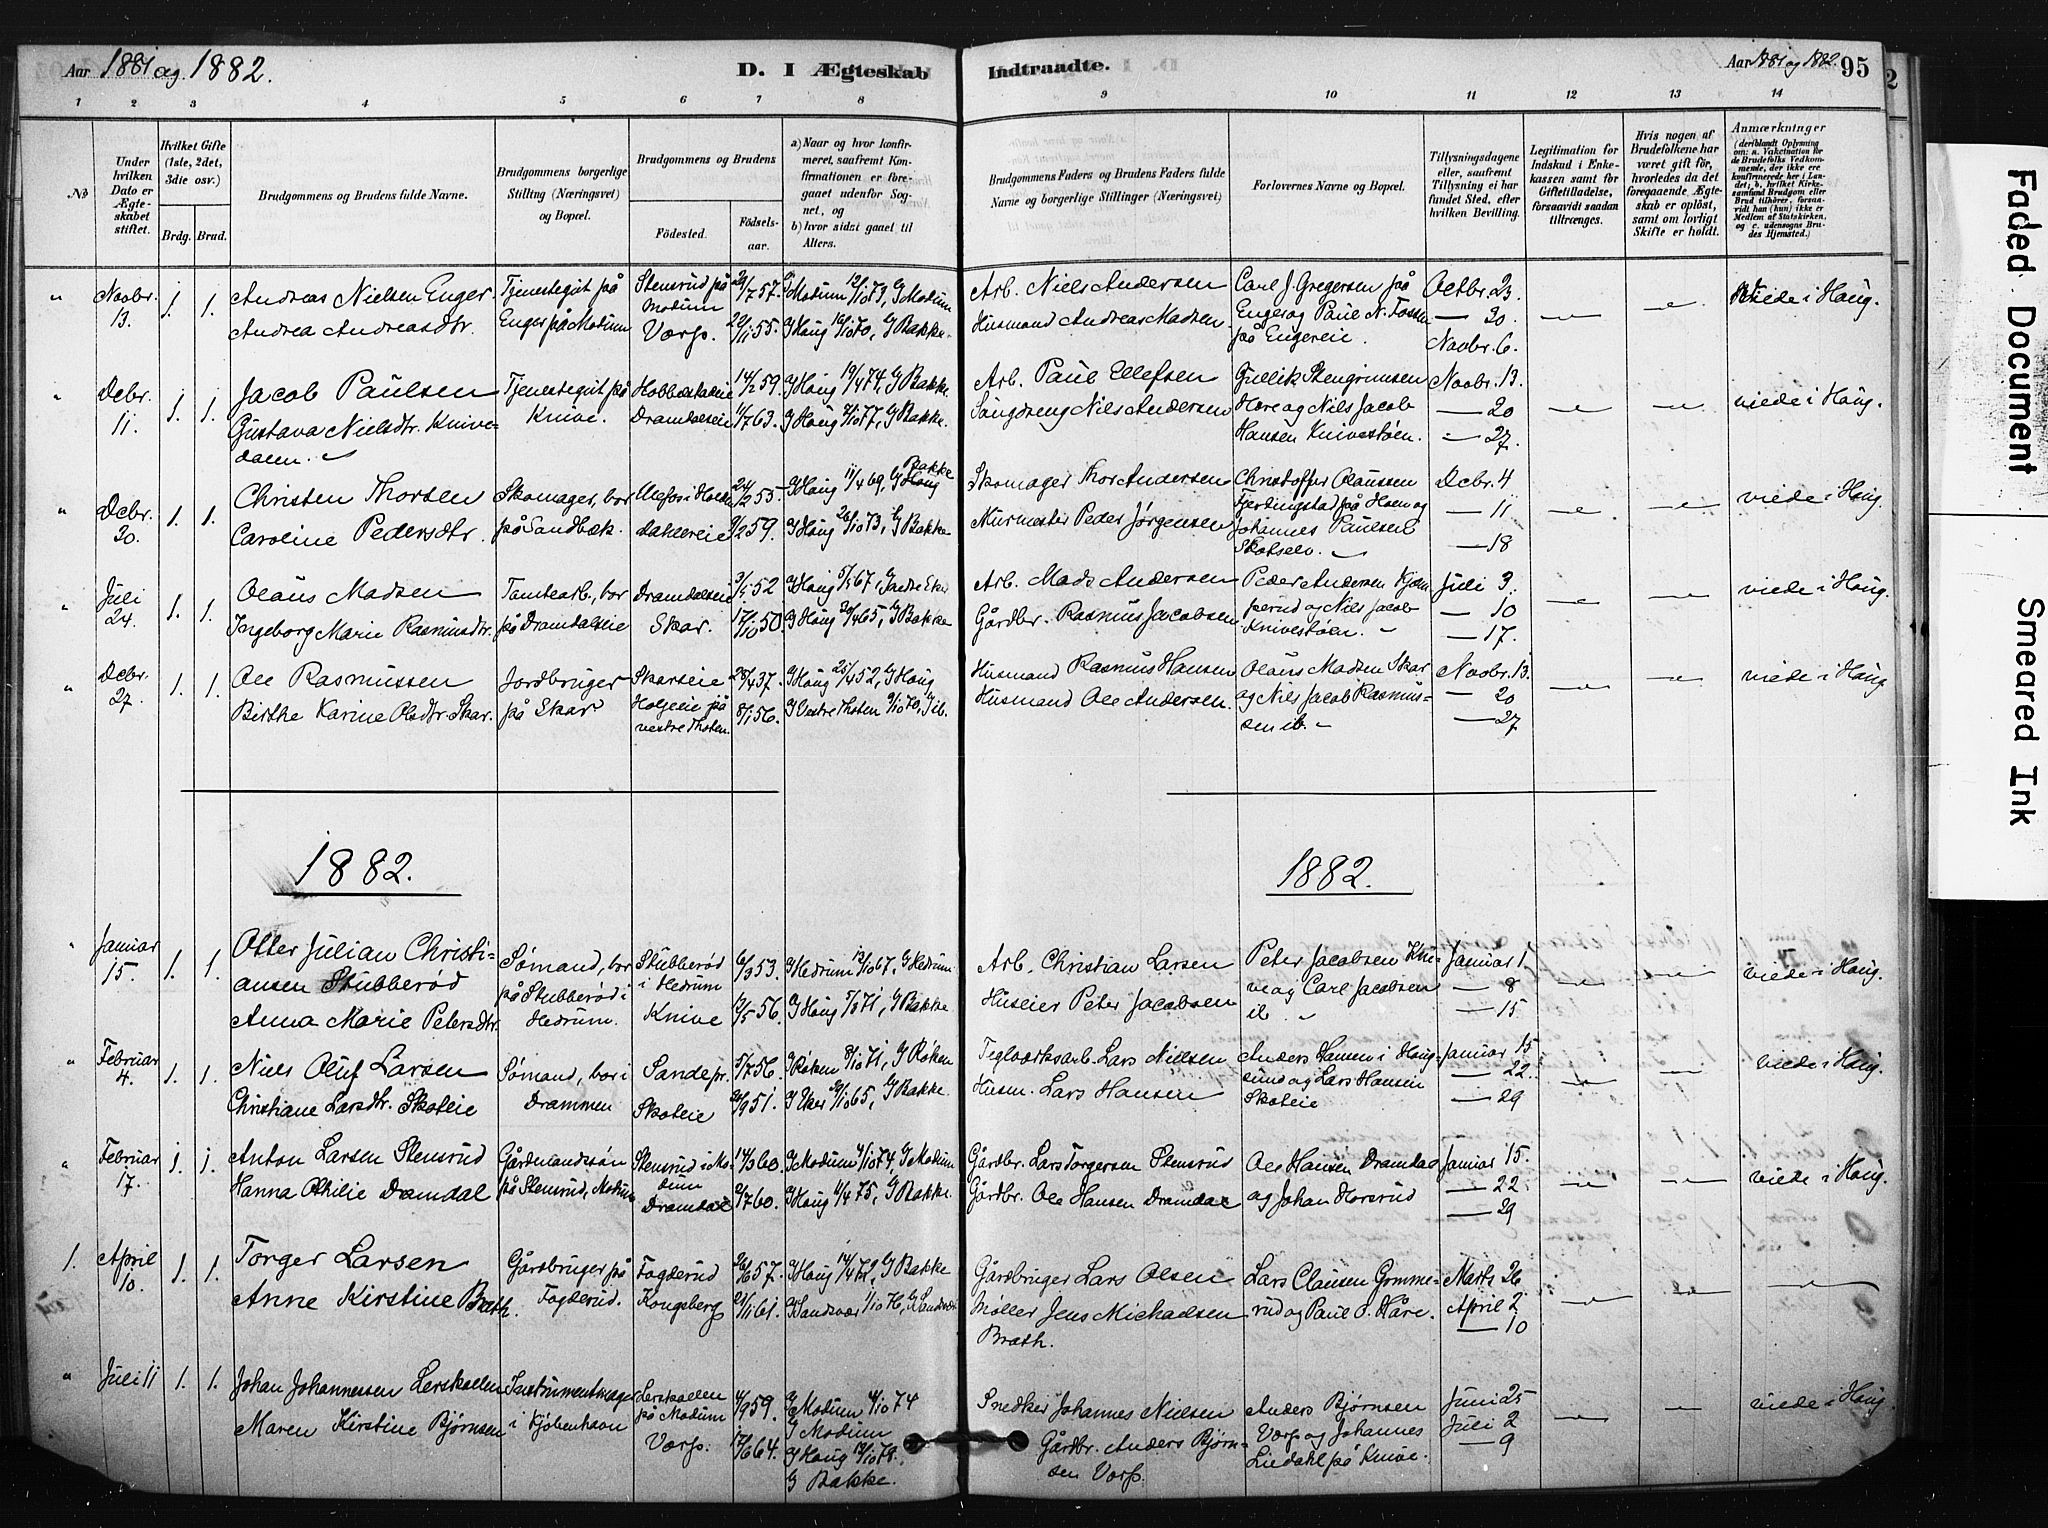 Aar 1881 og 1882.
D. I Ægteskab
Indtraadte.
Aar 1881 og 1882. 95
1 2 3 4 5 6 7 8 9 10 11 12 13 14
No
Under hvilken Dato er Ægteskabet stiftet.
Hvilket Gifte (1ste, 2det, 3die osv.)
Brdg. Brud.
Brudgommens og Brudens fulde Navne.
Brudgommens borgerlige Stilling (Næringsvei) og Bopæl.
Brudgommens og Brudens
Födested. Födselsaar.
a) Naar og hvor konfirmeret, saafremt Konfirmationen er foregaaet udenfor Sognet, og
b) hvor sidst gaaet til Alters.
Brudgommens Faders og Brudens Faders fulde Navne og borgerlige Stillinger (Næringsvei)
Forlovernes Navne og Bopæl.
Tillysningsdagene eller, saafremt Tillysning ei har fundet Sted, efter hvilken Bevilling.
Legitimation for Indskud i Enkekassen samt for Giftetilladelse, forsaavidt saadan tiltrænges.
Hvis nogen af Brudefolkene har været gift för, hvorledes da det foregaaende Ægteskab er oplöst, samt om lovligt Skifte er holdt.
Anmærkninger (deriblandt Oplysning om: a. Vakcination for de Brudefolks Vedkommende, der ikke ere konfirmerede her i Landet; b. hvilket Kirkesamfund Brudgom eller Brud tilhörer, forsaavidt han (hun) ikke er Medlem af Statskirken, og c. udensogns Brudes Hjemsted.)
" Novbr. 13. 1. 1. Andreas Nielsen Enger. Tjenestegut på Stensrud på 57. Modum 12/10 73, G Modum Arb. Niels Andersen Carl J. Gregersen på Octbr. 23. viede i Haug.
Andrea Andreasdtr. Enger på Modum Modum Vorp. 22/11 55. G Haug 16/10 70, G Bakke. Husmand Andreas Madsen. Enger og Paul N. Fossen — 30.
på Engereie. Novbr. 6.
" Dcbr. 11. 1. 1. Jacob Paulsen Tjenestegut på 14/2 59. G Haug 19/4 74, G Bakke Arb. Paul Ellefsen Gullik Stengrimsen Novbr. 13. viede i Haug.
Gustava Nielsdtr. Knive- Knive. Dramdalseie 1/7 63. G Haug 7/10 77, G Bakke. Niels Andersen Hore og Niels Jacob — 20
dalen. Hansen Knivestøen. — 27.
" Dcbr. 30. 1. 1. Christen Thorsen Skomager, bor 24/2 55. G Haug 11/4 69, G Bakke Skomager Thor Andersen Christoffer Olaussen Dcbr. 4 viede i Haug.
Caroline Pedersdtr. på Sandbæk. Dahlereie 59. G Haug 26/10 73, G Bakke Murmester Peder Jørgensen Fjerdingstad på Hoen og — 11
Johannes Paulsen — 18
Skotselv.
" Juli 24. 1. 1. Olaus Madsen Tomtearb., bor Dramdalseie 3/1 52 G Haug 5/5 67, Arb. Mads Andersen Peder Andersen Kjem Juli 3. viede i Haug.
Ingeborg Marie Rasmusdtr. på Dramdalseie Skar. 17/10 50. G Haug 20/4 65, G Bakke Gårdbr. Rasmus Jacobsen perud og Niels Jacob — 10
Knivestøen. — 17.
" Dcbr. 27. 1. 1. Ole Rasmussen Jordbruger Skarseie 28/4 37. G Haug 25/4 52, G Haug Husmand Rasmus Hansen Olaus Madsen Skar Novbr. 13. viede i Haug
Birthe Karine Olsdtr. Skar. på Skar på vestre Thoten. 8/1 56. G Vestre Thoten 9/10 70, G ib. Husmand Ole Andersen. og Niels Jacob Rasmus- — 20
sen ib. — 27
1882. 1882.
" Januar 15. 1. 1. Otter Julian Christi- Sømand, bor Stubberød 6/9 53. G Hedrum 13/10 67, G Hedrum Arb. Christian Larsen Peter Jacobsen Kni- Januar 1. viede i Haug.
ansen Stubberød på Stubberød i i Hedrum ve og Carl Jacobsen — 8
Anna Marie Petersdtr. Hedrum. Knive 56. G Haug 7/10 71, G Bakke Huseier Peter Jacobsen ib. — 15.
" Februar 4. 1. 1. Niels Oluf Larsen Sømand, bor i Sandepr. 5/7 56. G Røken 8/10 71, G Røken Teglværksarb. Lars Nielsen Anders Hansen i Haug- Januar 15 viede i Haug.
Christiane Larsdtr. Skoteie Drammen Skoteie 51. G Eker 65, G Bakke Husm. Lars Hansen sund og Lars Hansen — 22.
Skoteie — 29
" Februar 17. 1. 1. Anton Larsen Stensrud Gårdmandssøn Stensrud i Mo- 14/3 60. G Modum 4/10 74, G Modum Gårdbr. Lars Torgersen Stensrud Ole Hansen Dramdal Januar 15. viede i Haug.
Hanna Othilie Dramdal på Stensrud, Modum dum Dramdal 9/7 60. G Haug 11/4 75, G Bakke. Gårdbr. Ole Hansen Dramdal og Johan Horsrud — 22
— 29
1. April 10. 1. 1. Torger Larsen Gårdbruger på Fogderud 26/6 57. G Haug 14/4 72, G Bakke Gårdbruger Lars Olsen Lars Clausen Gomme- Marts 26
Anne Kirstine Brath. Fogderud. Kongsberg 21/11 61. G Sandsvær 1/10 76, G Sandsvær Møller Jens Michaelsen rud og Paul O. Håre. April 2
Brath. — 10
" Juli 11 1. 1. Johan Johannessen Lerskallen Instrumentmager Lerskallen 4/9 59. G Modum 4/10 74 Snedker Johannes Nielsen Anders Bjørnsen Juni 25 viede i Haug.
Maren Kirstine Bjørnsen i Kjøbenhavn på Modum G Modum Gårdbr. Anders Bjørn- Vorp og Johannes Juli 2
Vorp. 17/6 64. G Haug 13/10 78. G Bakke. sen Vorp. Liedahl på Knive. — 9
Faded Document
Smeared Ink